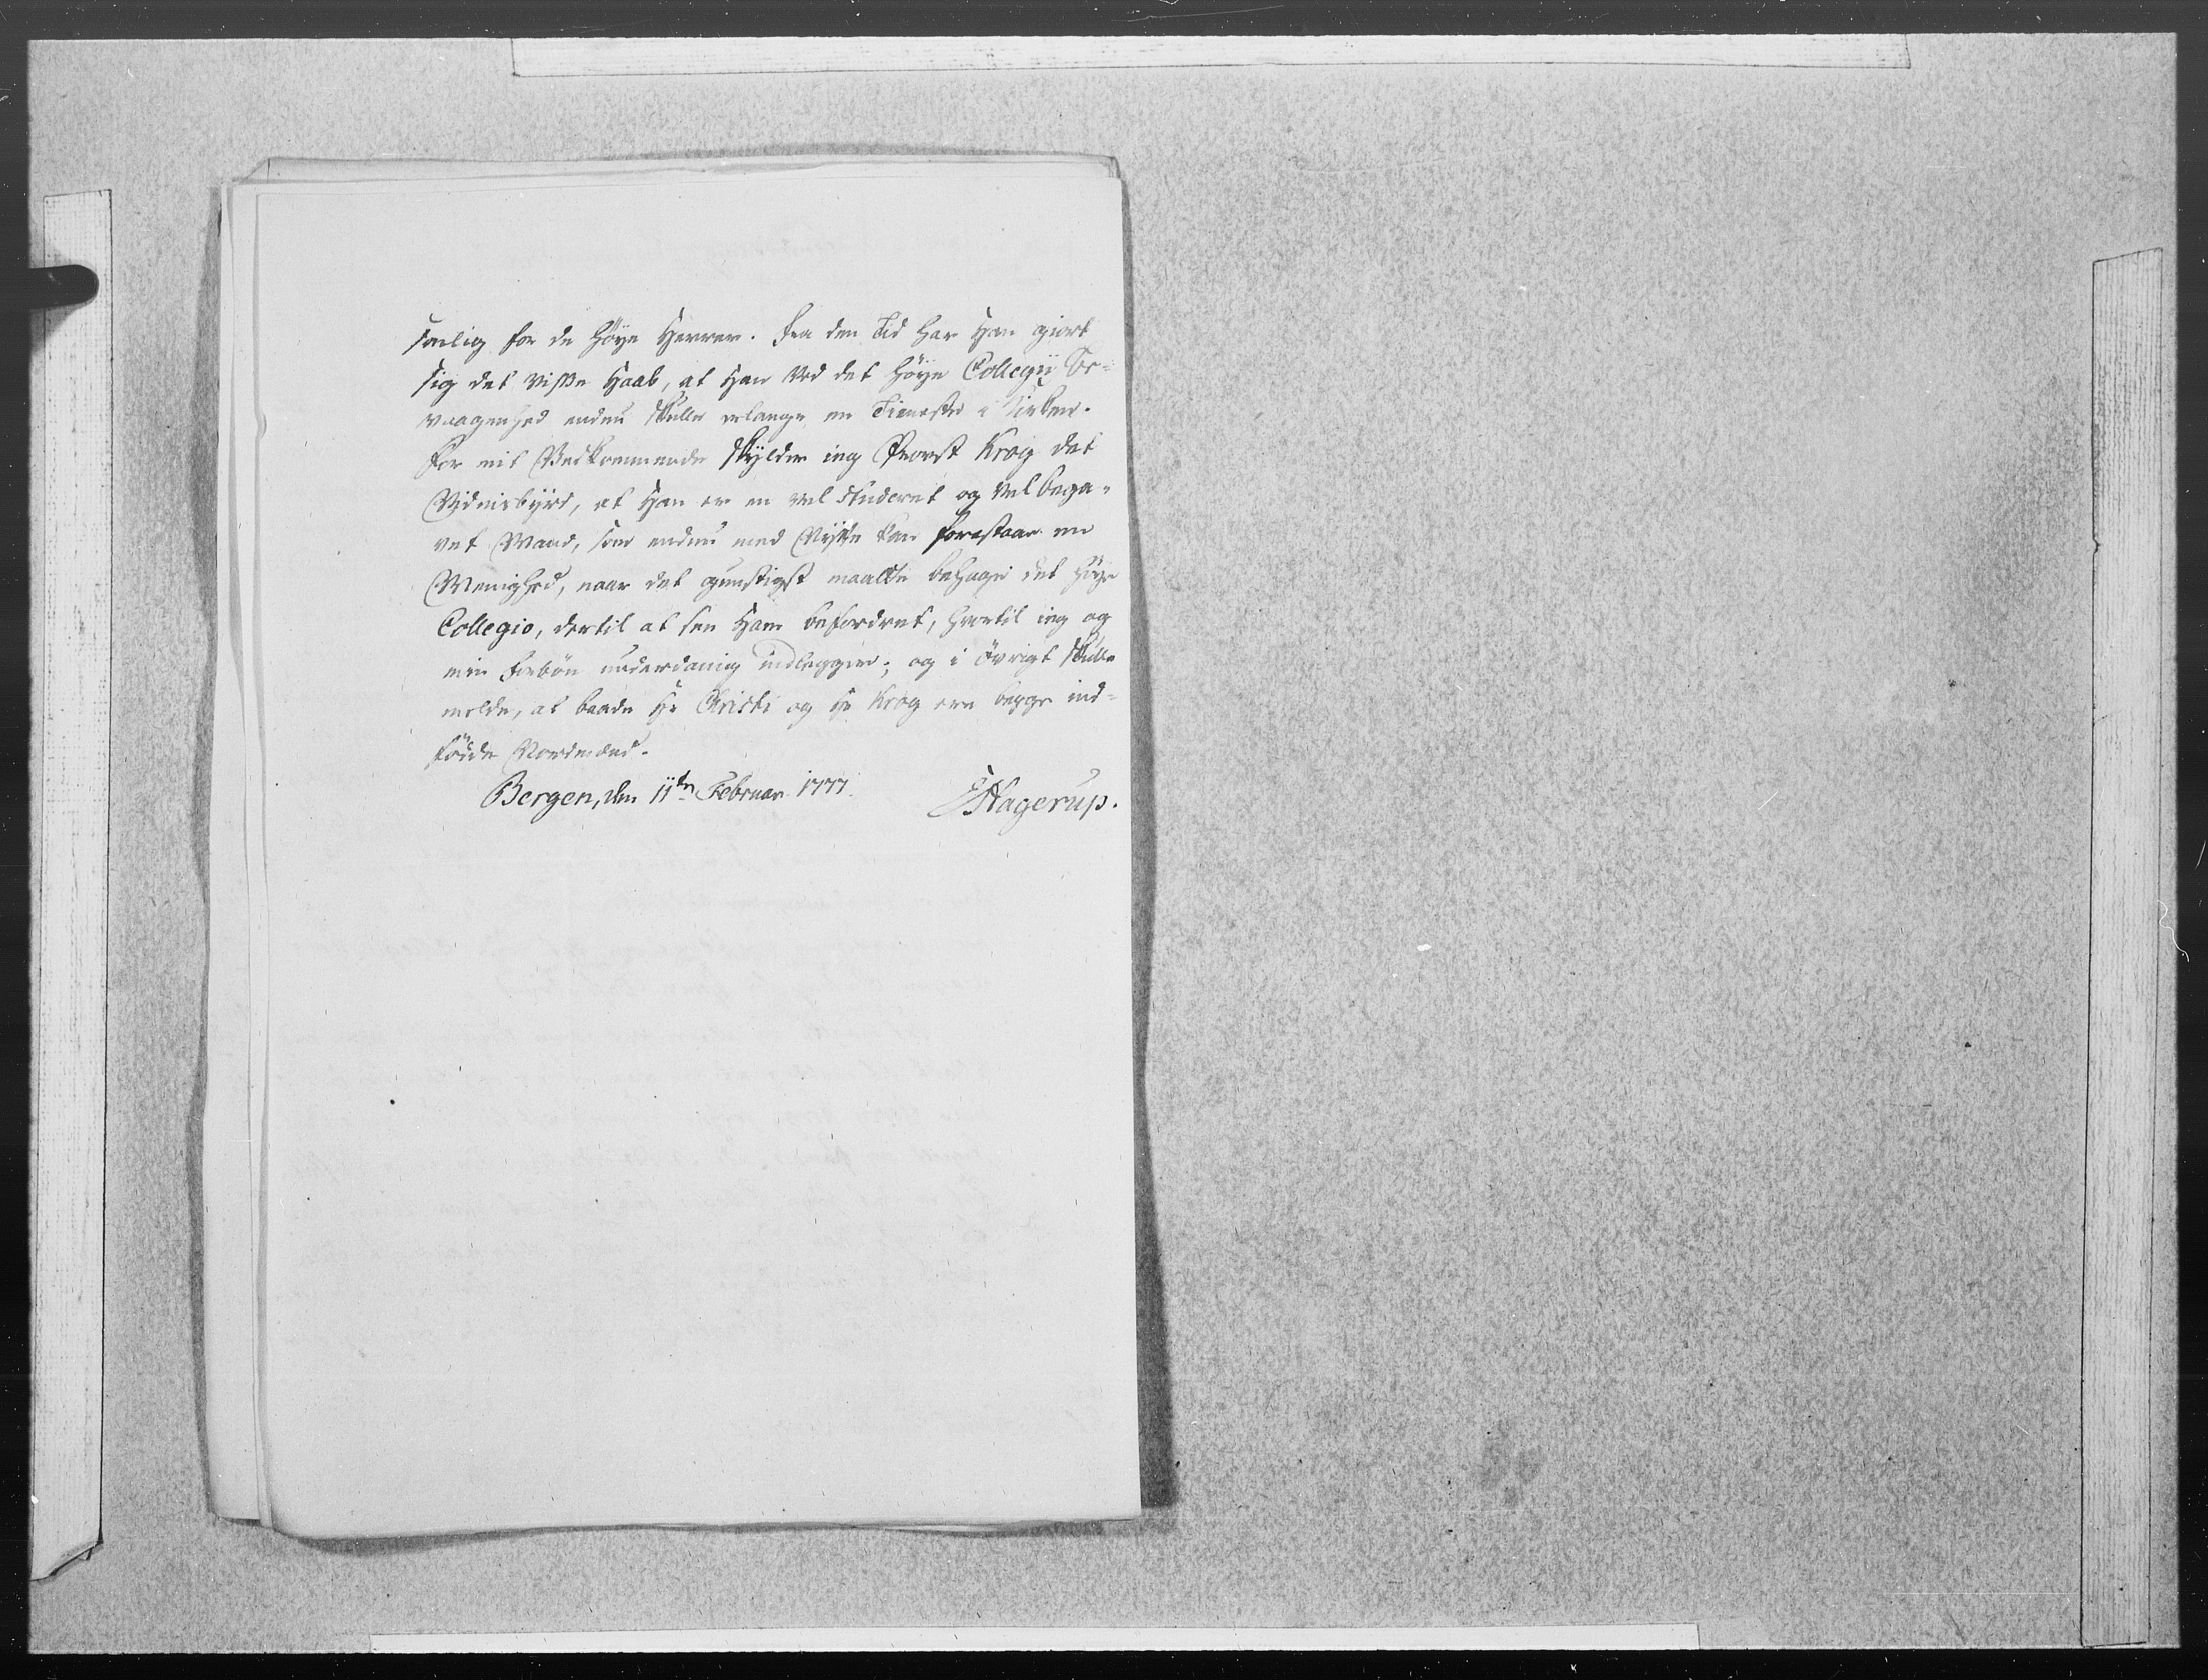 sonlig for de höye Herrer. Fra den Tid har Han giort
sig det visse Haab, at Han ved det höye Collegii Be-
vaagenhed endnu skulle erlange en Tieneste i Kirken.
For mit Vedkommende skylder ieg Provst Krog det
Vidnisbyrd, at Han er en vel studeret og vel bega-
vet Mand, som endnu med Nytte kan forestaae en
Menighed, naar det gunstigst maatte behage det höye
Collegio, dertil at see Ham befordret, hvortil ieg og
min Forbön underdanig indlegger; og i övrigt skulle
melde, at baade Hr Christi og Hr Krog ere begge ind-
födde Nordmænd.
Bergen, den 11te Februar 1777.
EHagerup.